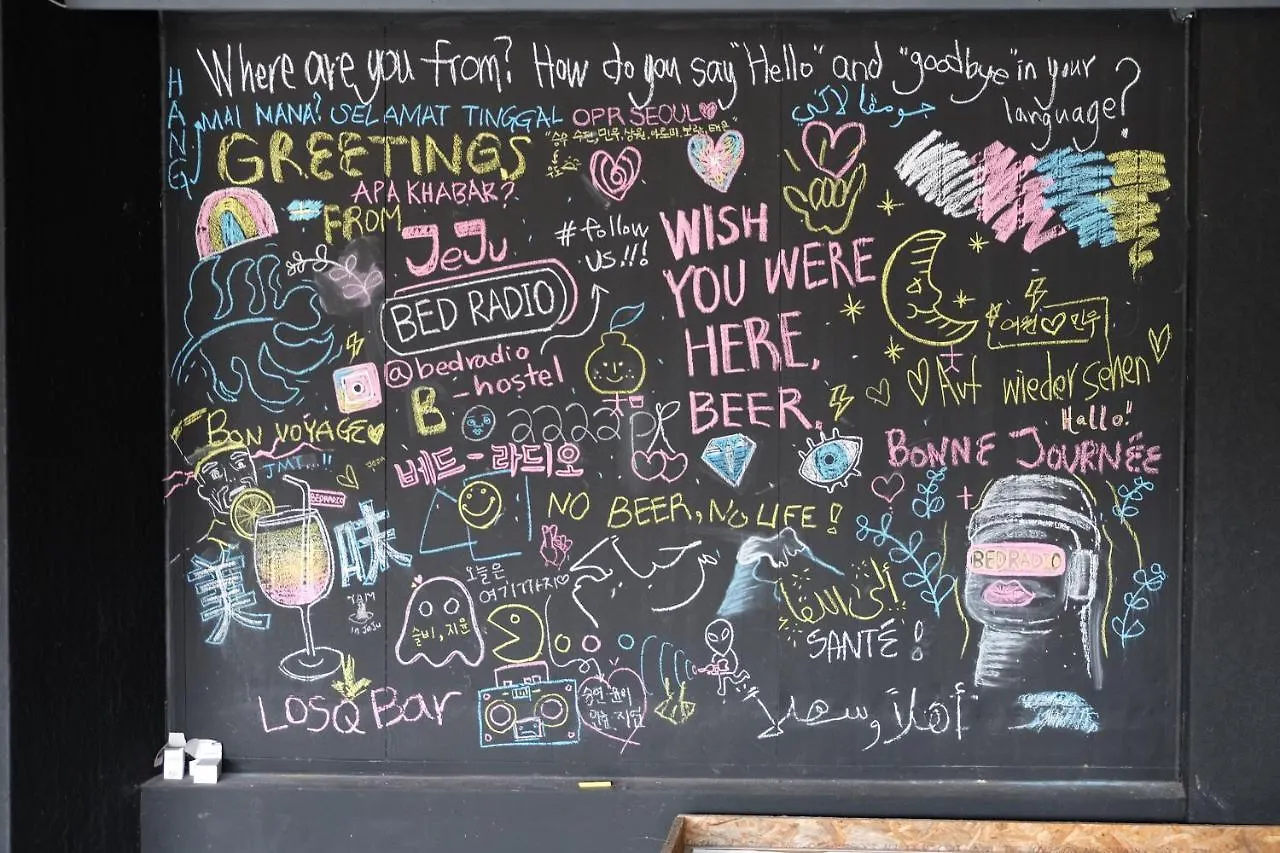 Where are you from? How do you say "Hello" and "goodbye" in your
language?
HANG
MAI MANA? SELAMAT TINGGAL
OPR SEOUL
GREETINGS
APA KHABAR?
FROM
JeJu
#follow
us!!!
BED RADIO
@bedradio
_hostel
WISH
YOU WERE
HERE,
BEER.
Auf wiedersehen
Hallo!
BONNE JOURNÉE
BON VOYAGE
JMT...!!
B
베드-라디오
BEDRADIO
NO BEER, NO LIFE!
味
美
YAM
in JeJu
오늘은
여기까지
슬비, 지윤
BEDRADIO
SANTÉ!
LOSQ Bar
أهلاً وسهلاً